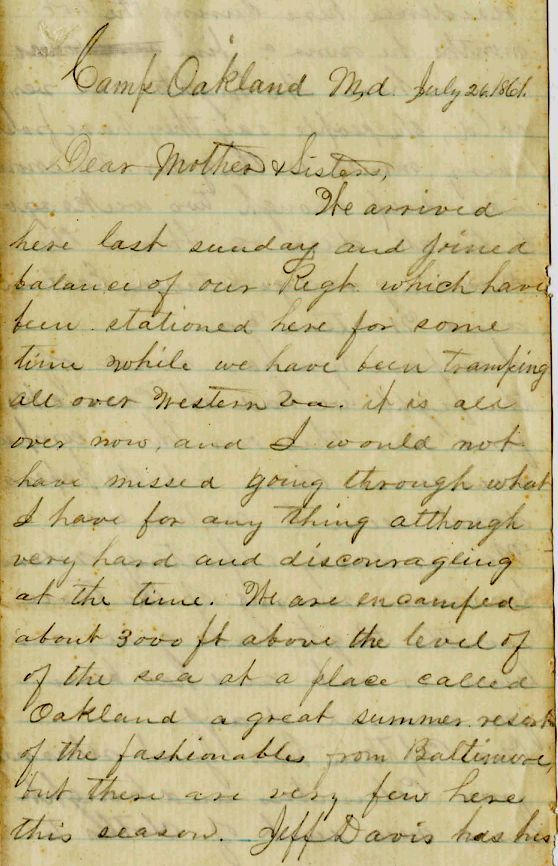 Camp Oakland Md. July 26. 1861.
Dear Mother & Sisters,
We arrived
here last sunday and joined
balance of our Regt. which have
been stationed here for some
time while we have been tramping
all over Western Va. it is all
over now, and I would not
have missed going through what
I have for any thing although
very hard and discourageing
at the time. We are encamped
about 3000 ft above the level of
of the sea at a place called
Oakland a great summer resort
of the fashionables from Baltimore,
but there are very few here
this season. Jeff Davis has his